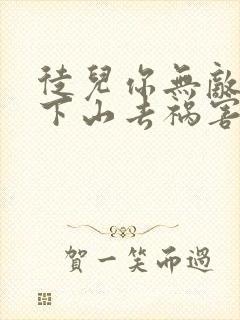 徒兒你無敵
下山去禍害
賀一笑而過